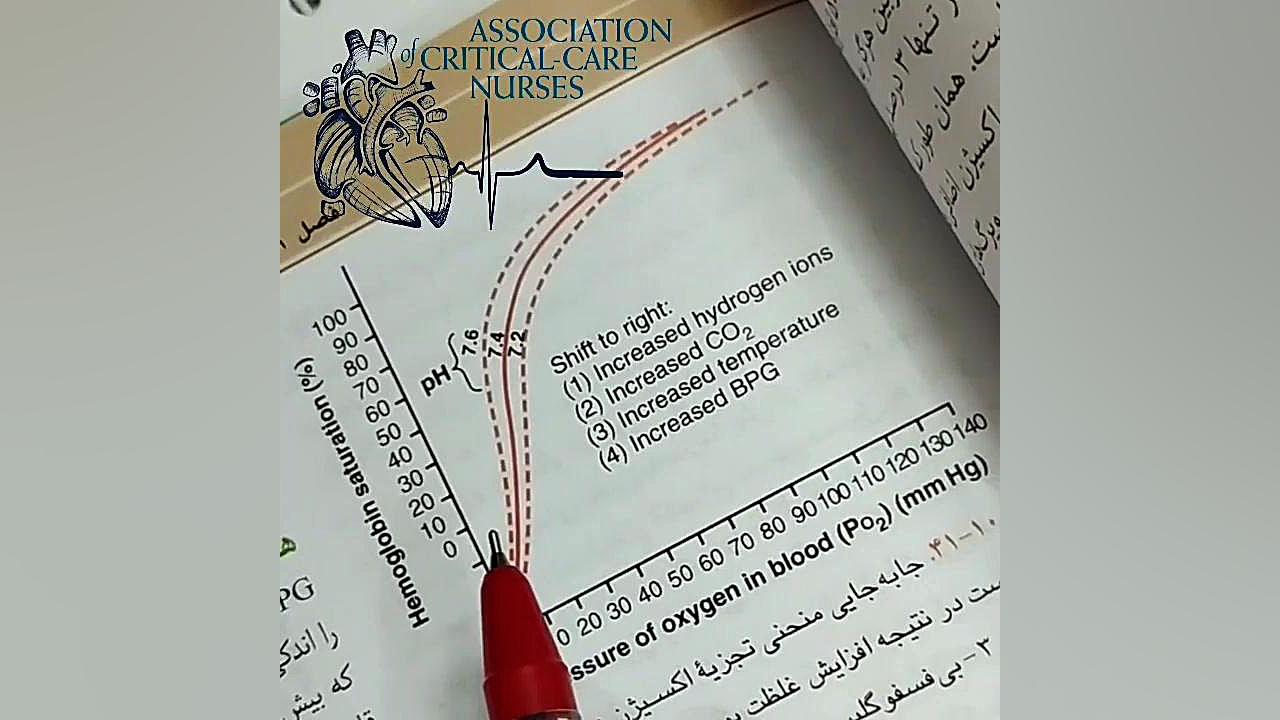 ASSOCIATION
of CRITICAL-CARE
NURSES
فصل
100
90
80
70
60
50
40
30
20
10
0
Hemoglobin saturation (%)
pH
7.6
7.4
7.2
Shift to right:
(1) Increased hydrogen ions
(2) Increased CO2
(3) Increased temperature
(4) Increased BPG
0 20 30 40 50 60 70 80 90 100 110 120 130 140
of oxygen in blood (Po2) (mm Hg)
۴۱-۱۰. جابه‌جایی منحنی تجزیهٔ
در نتیجه افزایش غلظت
۳-
PG
را
که بیش
تنها ۳
همان
اکسیژن